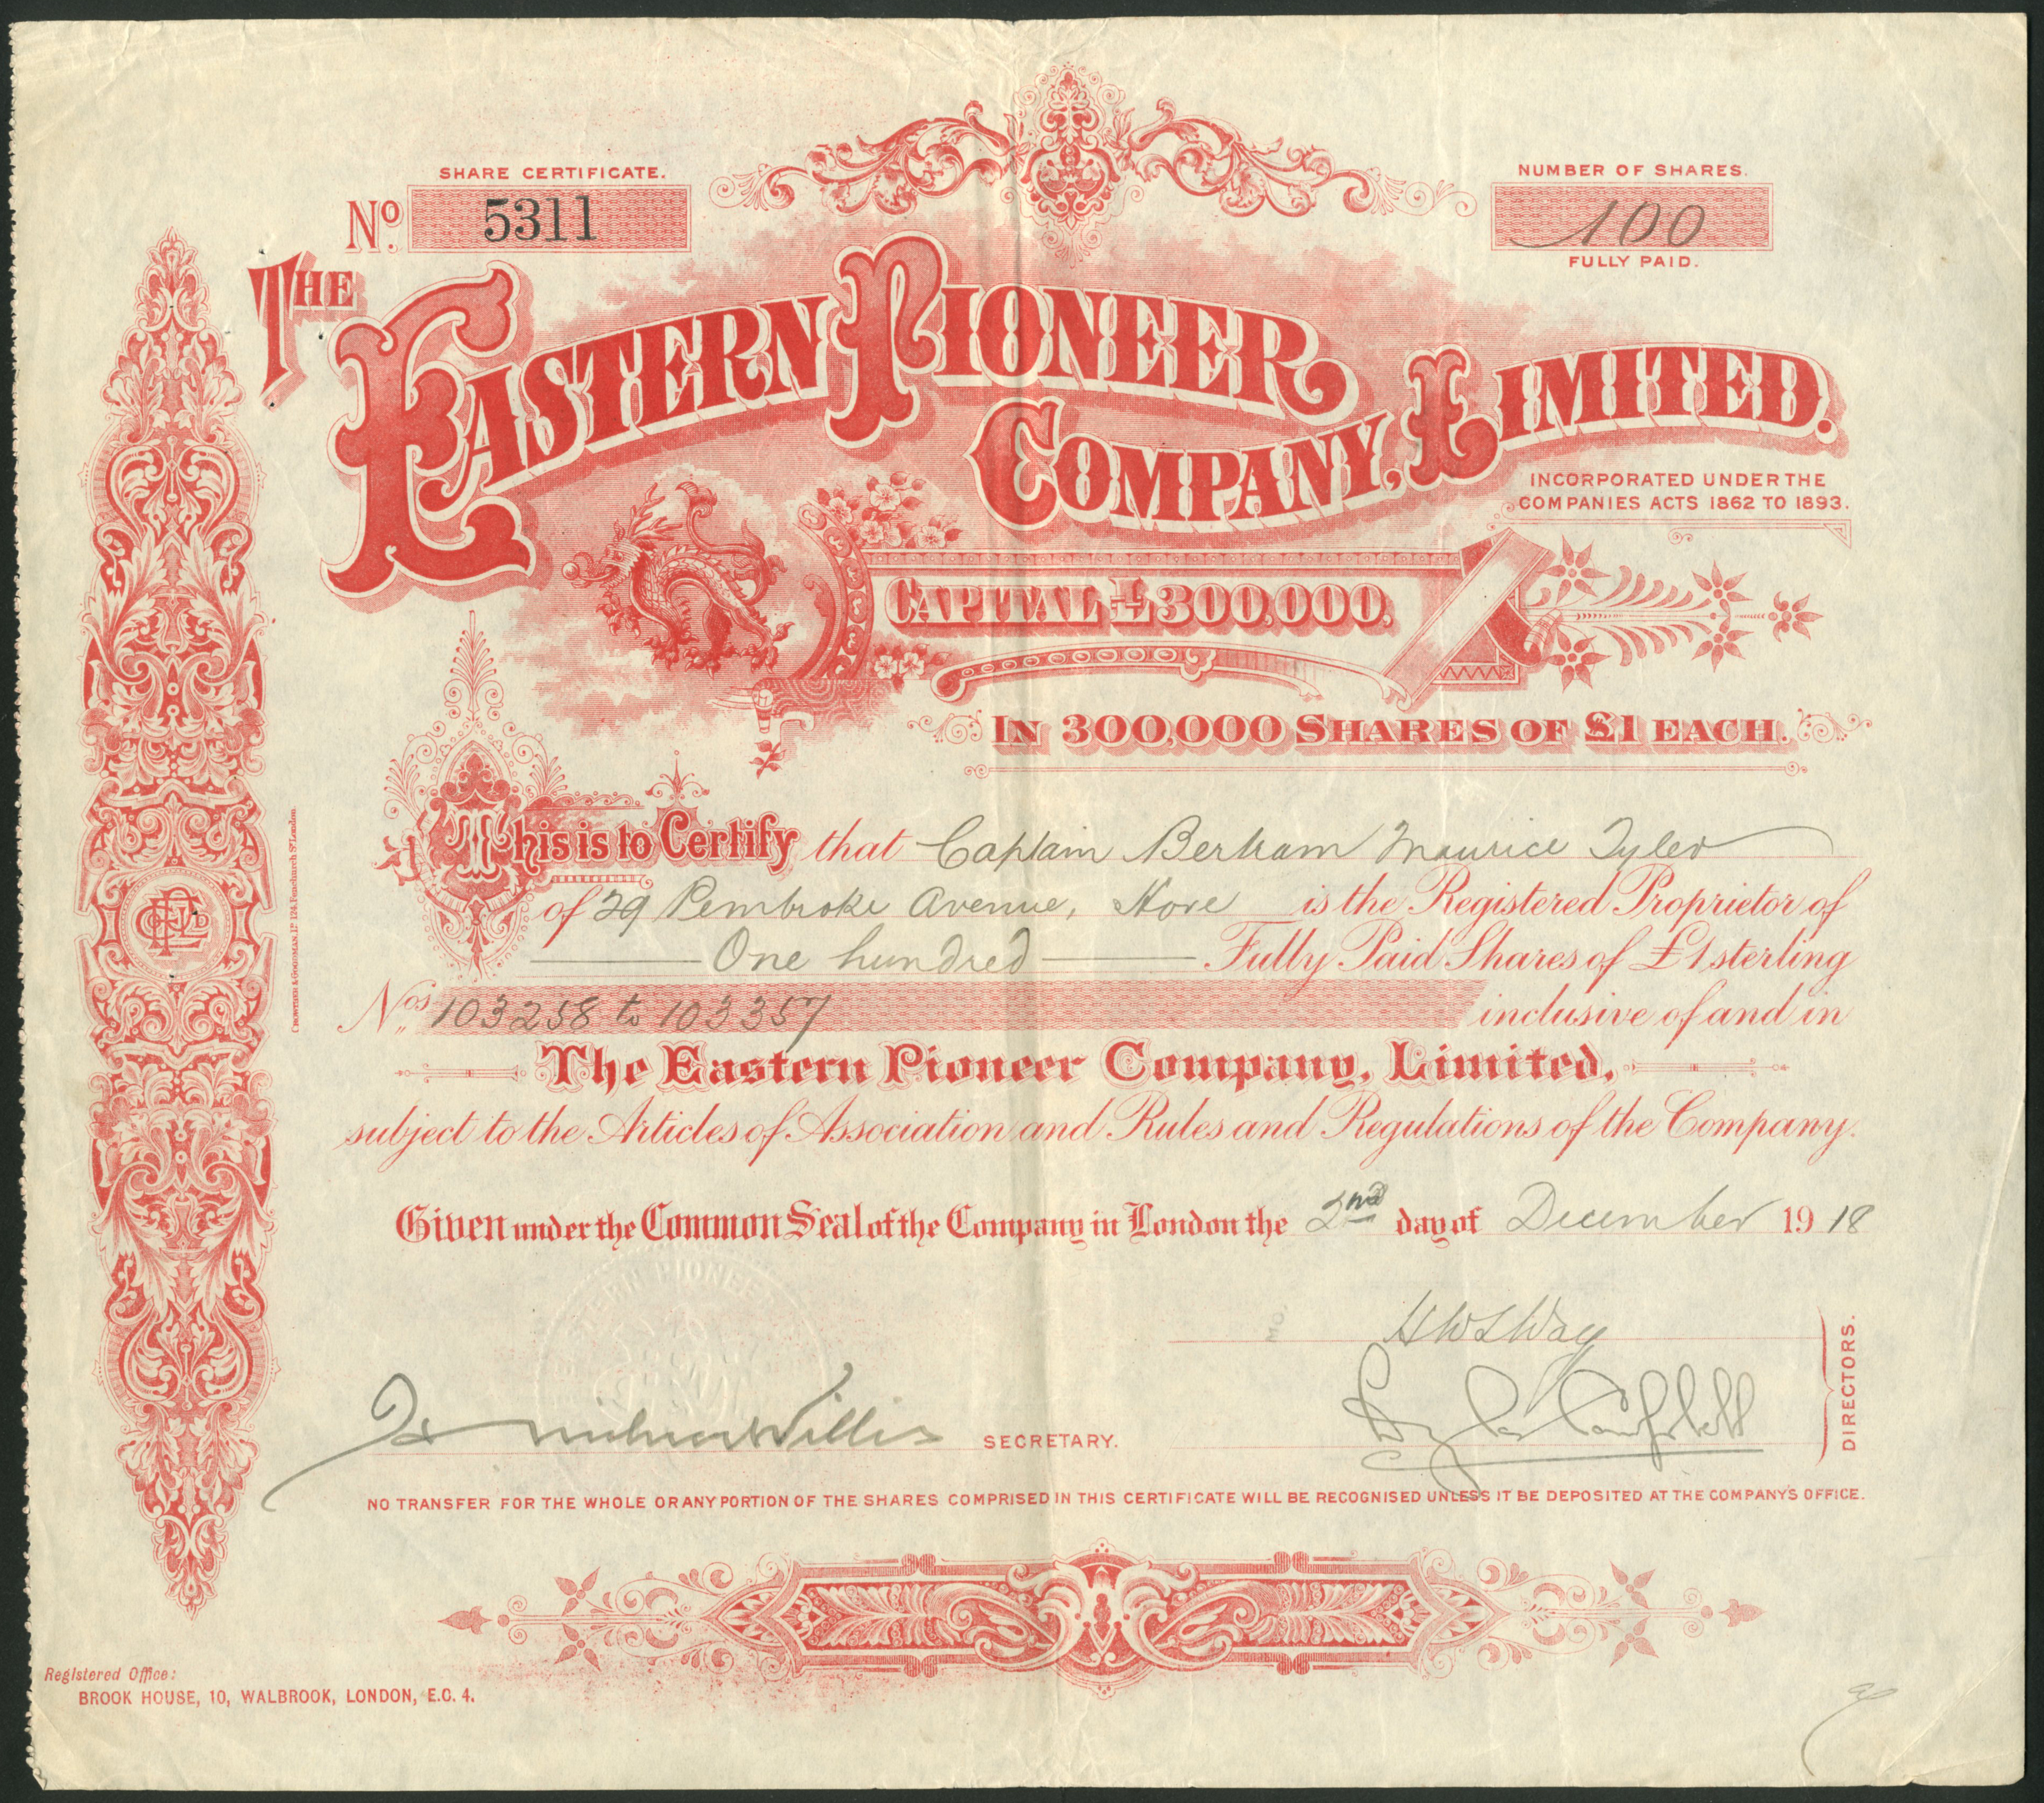 SHARE CERTIFICATE.
No. 5311
NUMBER OF SHARES.
100
FULLY PAID.
THE EASTERN PIONEER COMPANY, LIMITED.
INCORPORATED UNDER THE
COMPANIES ACTS 1862 TO 1893.
CAPITAL £300,000,
IN 300,000 SHARES OF £1 EACH.
This is to Certify that Captain Bertram Maurice Tyler
of 29 Pembroke Avenue, Hove is the Registered Proprietor of
One hundred Fully Paid Shares of £1 sterling
Nos. 103258 to 103357 inclusive of and in
The Eastern Pioneer Company, Limited,
subject to the Articles of Association and Rules and Regulations of the Company.
Given under the Common Seal of the Company in London the 2nd day of December 1918
EASTERN PIONEER
HWLWay
Willis SECRETARY.
DIRECTORS.
NO TRANSFER FOR THE WHOLE OR ANY PORTION OF THE SHARES COMPRISED IN THIS CERTIFICATE WILL BE RECOGNISED UNLESS IT BE DEPOSITED AT THE COMPANY'S OFFICE.
Registered Office:
BROOK HOUSE, 10, WALBROOK, LONDON, E.C. 4.
CROWTHER & GOODMAN, LD 124, Fenchurch St London.